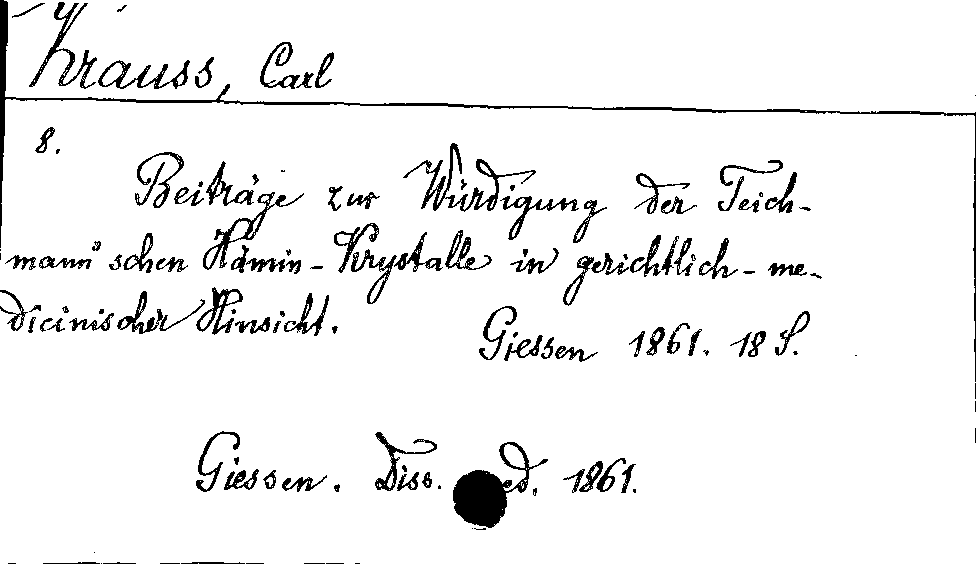 Krauss, Carl
8.
Beiträge zur Würdigung der Teich-
mann'schen Hämin-Krystalle in gerichtlich-me-
dicinischer Hinsicht.
Giessen 1861. 18 S.
Giessen. Diss. ed. 1861.